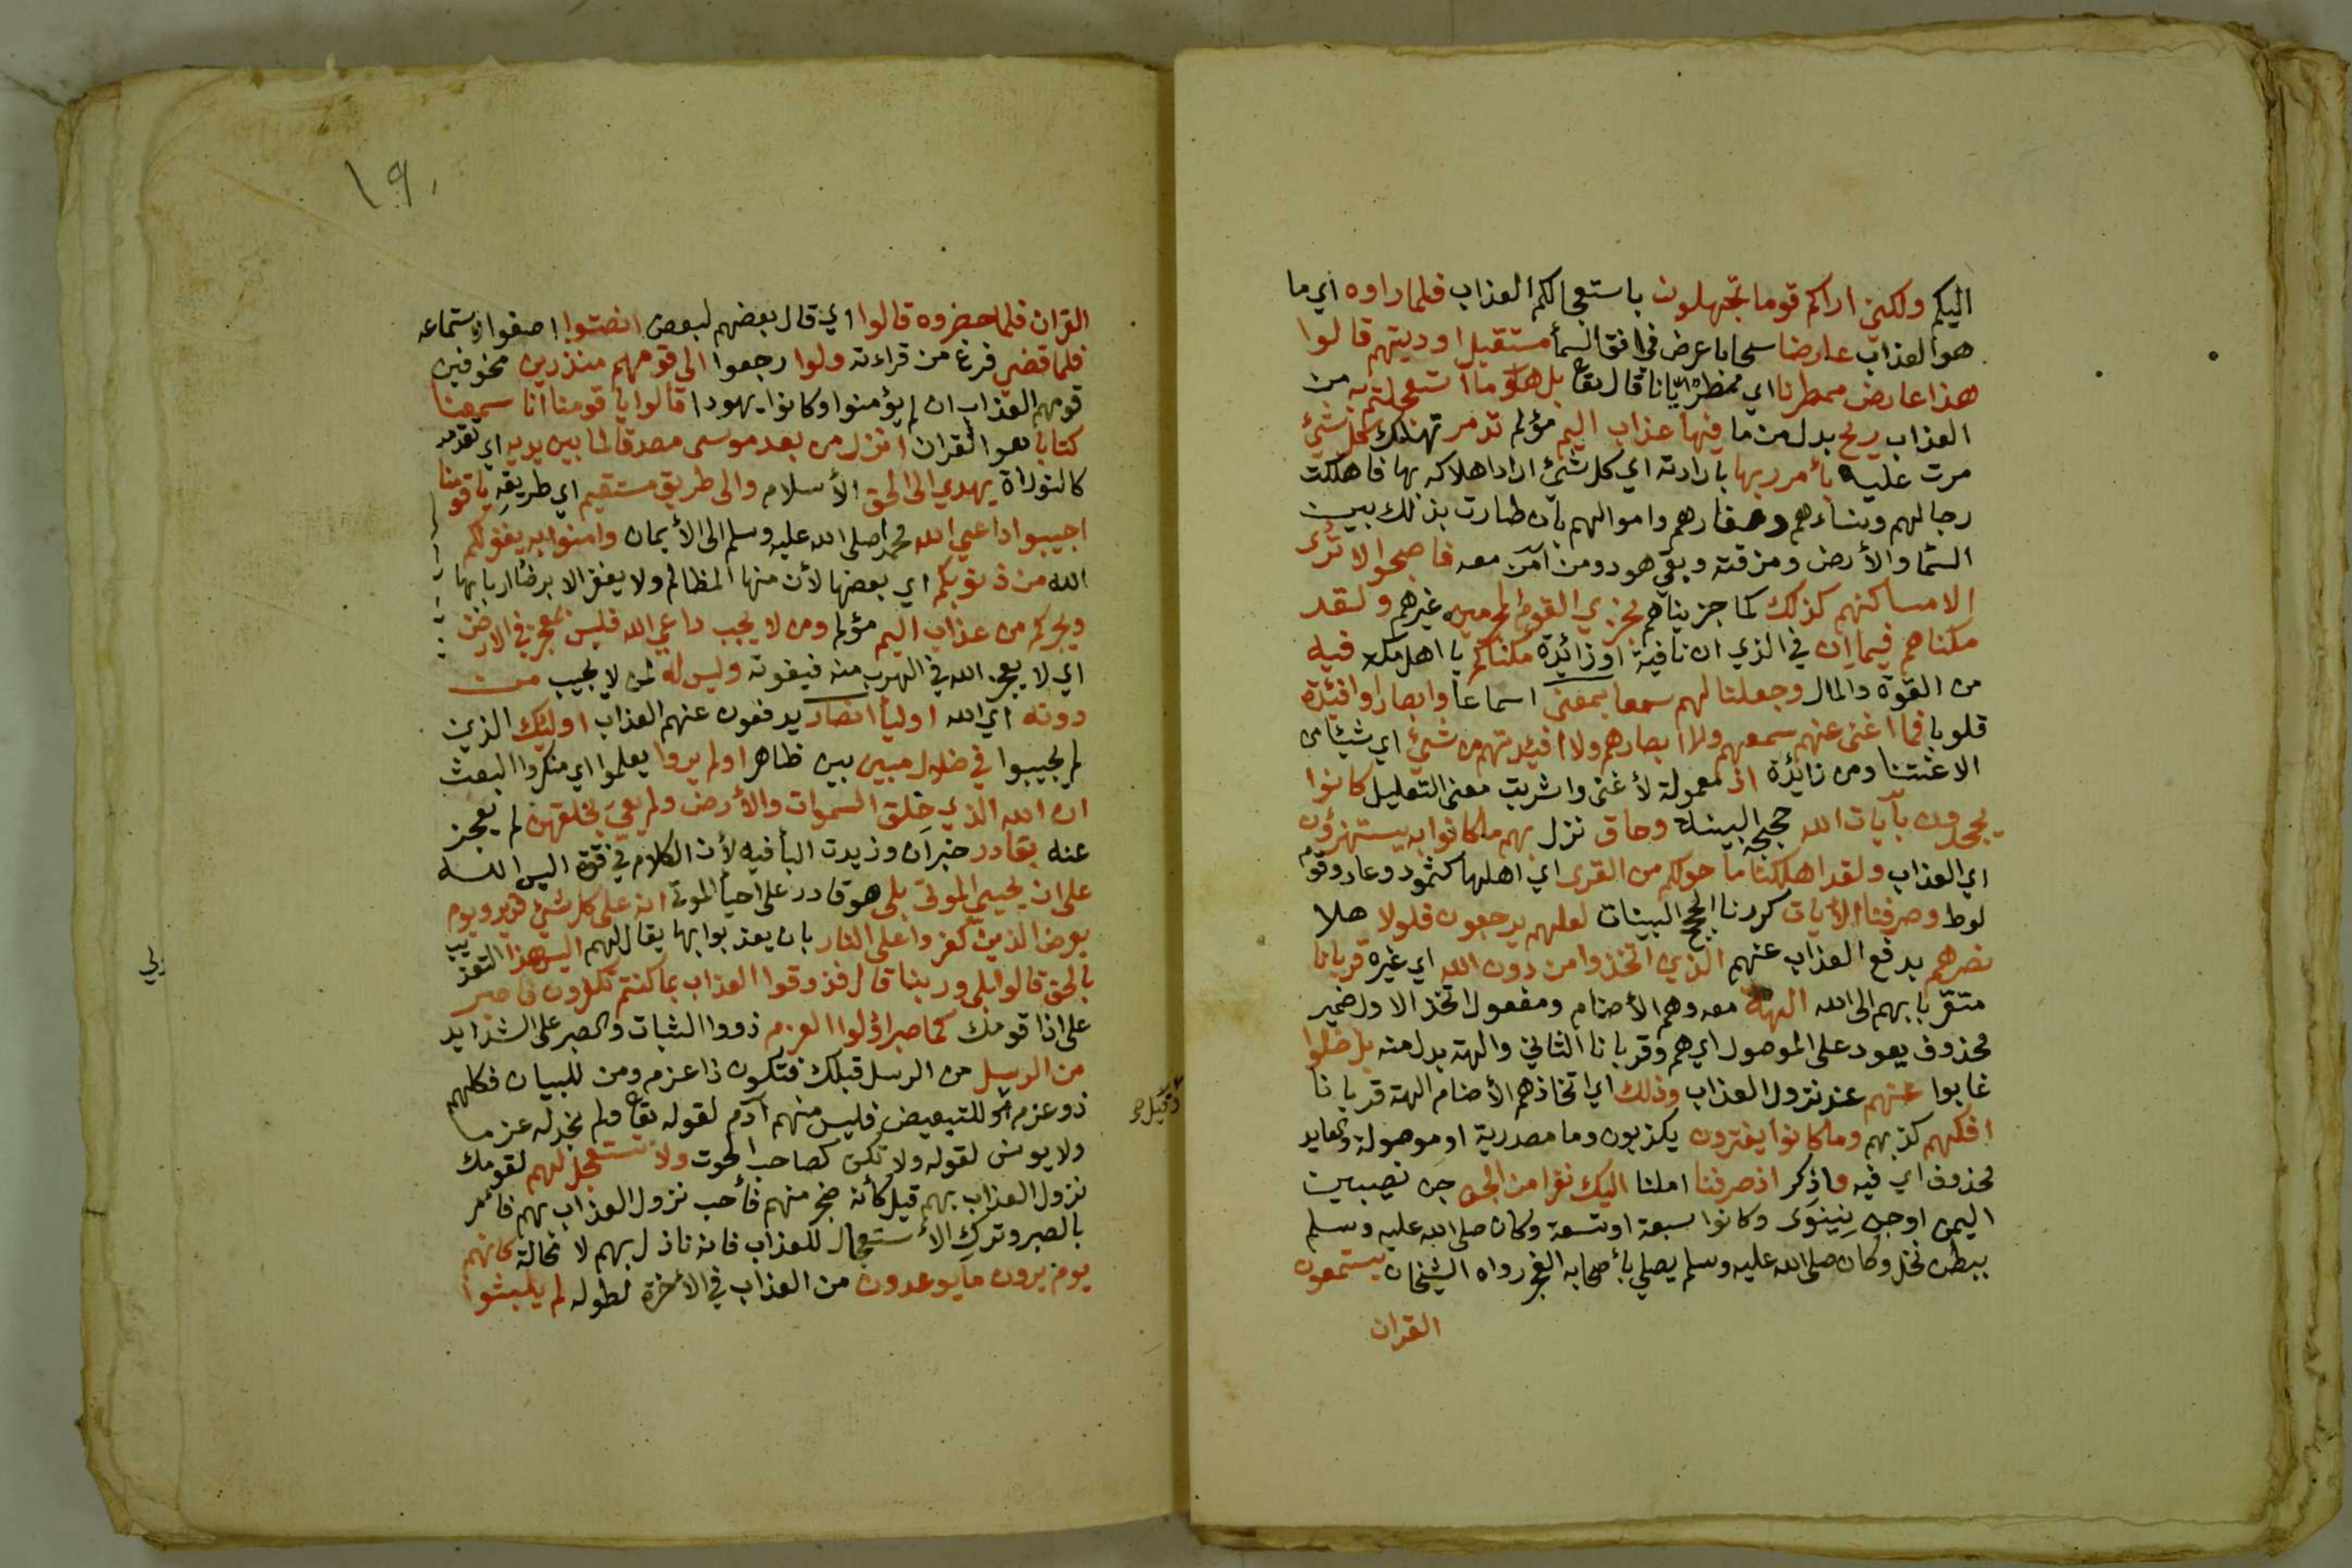 اليكم ولكني اراكم قوما تجهلون باستعجالكم العذاب فلما راوه اي ما
هو العذاب عارضا سحابا عرض في افق السمأ مستقبل اوديتهم قالوا
هذا عارض ممطرنا اي ممطر ايانا قال تعا بل هو ما استعجلتم به من
العذاب ريح بدل من ما فيها عذاب اليم مؤلم تدمر تهلك كل شئ
مرت عليه بأمر ربها بارادته اي كل شئ اراد اهلاكه بها فاهلكت
رجالهم ونساءهم وصغارهم واموالهم بان طارت بذلك بين
السما والأرض ومزقته وبقي هود ومن آمن معه فاصبحوا لا ترى
الا مساكنهم كذلك كما جزيناهم نجزي القوم المجرمين غيرهم ولقد
مكناهم فيما ان في الذي ان نافية او زائدة مكناكم يا اهل مكه فيه
من القوة والمال وجعلنا لهم سمعا بمعنى اسماعا وابصارا وافئدة
قلوبا فما اغنى عنهم سمعهم ولا ابصارهم ولا افيدتهم من شئ اي شيئا من
الاغنتنا ومن زايدة اذ معمولة لأغنى واشربت معنى التعليل كانوا
يجحدون بآيات الله حججه البينة وحاق نزل بهم ما كانوا به يستهزؤن
اي العذاب ولقد اهلكنا ما حولكم من القرى اي اهلها كثمود وعاد وقوم
لوط وصرفنا الأيات كررنا الحجج البينات لعلهم يرجعون فلولا هلا
نصرهم بدفع العذاب عنهم الذي اتخذوا من دون الله اي غيره قربانا
متقربا بهم الى الله الهة معه وهم الأصنام ومفعول اتخذ الاول ضمير
محذوف يعود على الموصول اي هم وقربانا الثاني والهة بدل منه بل ضلوا
غابوا عنهم عند نزول العذاب وذلك اي اتخاذهم الأصنام الهة قربانا
افكهم كذبهم وما كانوا يفترون يكذبون وما مصدرية او موصولة والعايد
محذوف اي فيه واذكر اذ صرفنا املنا اليك نفرا من الجن جن نصيبين
اليمن او جن نينوى وكانوا سبعة او تسعة وكان صلى الله عليه وسلم
ببطن نخل وكان صلى الله عليه وسلم يصلي بأصحابه الفجر رواه الشيخان يستمعون
القران
١٩٠
القران فلما حضروه قالوا اي قال بعضهم لبعض انصتوا اصغوا لاستماعه
فلما قضي فرغ من قراءته ولوا رجعوا الى قومهم منذرين مخوفين
قومهم العذاب ان لم يؤمنوا وكانوا يهودا قالوا يا قومنا انا سمعنا
كتابا هو القران انزل من بعد موسى مصدقا لما بين يديه اي تقدمه
كالتوراة يهدي الى الحق الأسلام والى طريق مستقيم اي طريقه يا قومنا
اجيبوا داعي الله محمدا صلى الله عليه وسلم الى الأيمان وامنوا به يغفر لكم
الله من ذنوبكم اي بعضها لأن منها المظالم ولا يغفر الا برضا اربابها
ويجركم من عذاب اليم مؤلم ومن لا يجب داعي الله فليس بمعجز في الارض
اي لا يعجز الله في الهرب منه فيفوته وليس له لمن لا يجيب من
دونه اي الله اوليأ انصار يدفعون عنهم العذاب اوليك الذين
لم يجيبوا في ضلال مبين بين ظاهر اولم يروا يعلموا اي منكروا البعث
ان الله الذي خلق السموات والأرض ولم يعي بخلقهن لم يعجز
عنه بقادر خبر ان وزيدت البأ فيه لأن الكلام في قوة اليس الله
على ان يحيي الموتى بلى هو قادر على احيأ الموتى انه على كل شئ قدير ويوم
يعرض الذين كفروا على النار بان يعذبوا بها يقال لهم اليس هذا التعذيب
بالحق قالوا بلى وربنا قال فذوقوا العذاب بما كنتم تكفرون فاصبر
على اذا قومك كما صبر اولوا العزم ذووا الثبات والصبر على الشدايد
من الرسل من الرسل قبلك فتكون ذا عزم ومن للبيان فكلهم
ذو عزم او للتبعيض فليس منهم آدم لقوله تعا ولم نجد له عزما
ولا يونس لقوله ولا تكن كصاحب الحوت ولا تستعجل لهم لقومك
نزول العذاب بهم قيل كأنه ضجر منهم فأحب نزول العذاب بهم فأمر
بالصبر وترك الأستعجال للعذاب فانه نازل بهم لا محالة كانهم
يوم يرون ما يوعدون من العذاب في الأخرة لطوله لم يلبثوا